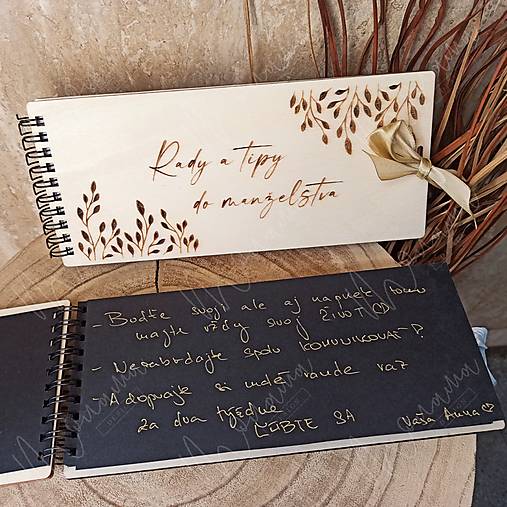 Rady a tipy
do manželstva
- Buďte svoji ale aj napriek tomu
majte vždy svoj ŽIVOT ♡
- Nezabúdajte spolu KOMUNIKOVAŤ!
- A doprajte si rande raz
za dva týždne
ĽÚBTE SA Vaša Anna ♡